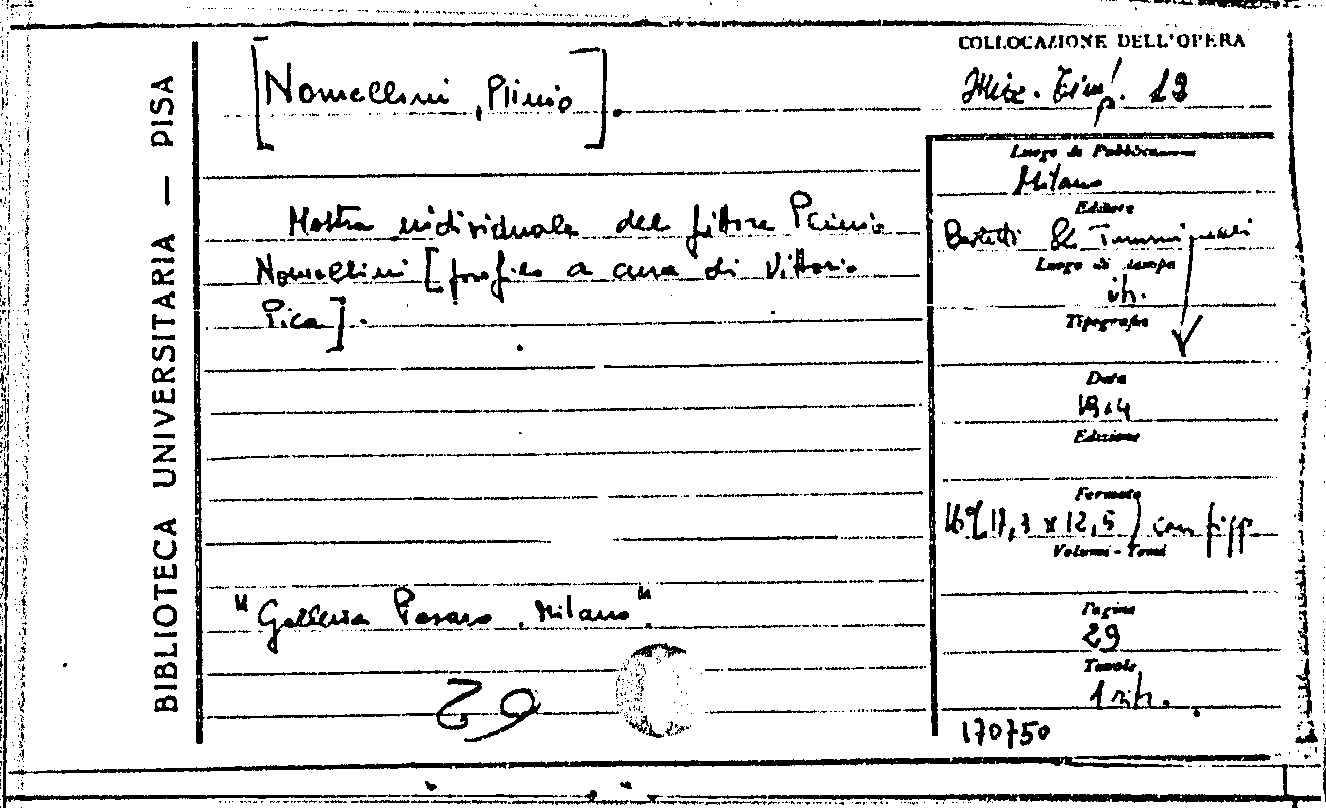 BIBLIOTECA UNIVERSITARIA — PISA
[Nomellini, Plinio].
Mostra individuale del pittore Plinio
Nomellini [profilo a cura di Vittorio
Pica].
"Galleria Pesaro, Milano".
29
COLLOCAZIONE DELL'OPERA
Luogo di Pubblicazione
Milano
Editore
Bestetti &
Luogo di stampa
Tipografia
Data
Edizione
Formato
con figg.
Volumi - Tomi
Pagine
29
Tavole
1 ritr.
170750